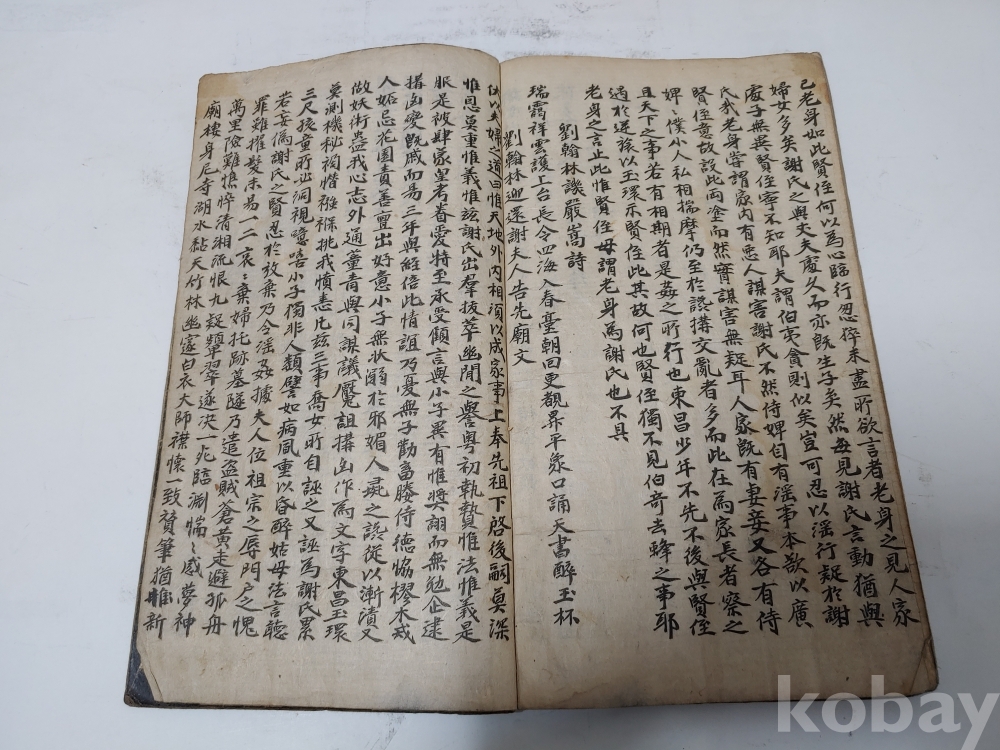 已老身如此賢侄何以爲心臨行忽猝未盡所欲言者老身之見人家
婦女多矣謝氏之與丈夫處久而亦旣生子矣然每見謝氏言動猶與
處子無異賢侄寧不知耶夫謂伯夷會則似矣豈可忍以淫行疑於謝
氏我老身常謂家內有惡人謀害謝氏不然侍婢自有淫事本欲以廣
賢侄意故設此兩塗而然實謀害無疑耳人家旣有妻妾又各有侍
婢僕小人私相揣摩仍至於謗搆交亂者多而此在爲家長者察之
且天下之事若有相期者是姦之所行也東昌少年不先不後與賢侄
遇於逆旅以玉環示賢侄此其故何也賢侄獨不見伯奇去蜂之事耶
老身之言止此惟賢侄毋謂老身爲謝氏也不具
劉翰林譏嚴嵩詩
瑞靄祥雲護上台長令四海入春臺朝回更覩昇平象口誦天書醉玉杯
劉翰林迎還謝夫人告先廟文
伏以夫婦之道曰惟天地外內相須以成家事上奉先祖下啓後嗣莫深
惟恩莫重惟義惟玆謝氏出羣拔萃幽閒之譽粤初執贄惟法惟義是
服是被肆蒙皇考眷愛特至承受顧言與小子異有惟將翮而無勉企逮
搆凶孌旣戚而易三年與經倍此情誼乃憂無子勸畜媵侍德協樛木戒
人妬忌花園責善亶出好意小子無狀溺於邪媚人彘之謗從以漸漬又
做妖術蠱我心志外通董青與同謀議魘詛搆凶作爲文字東昌玉環
莫測機秘禍憯襁褓挑我憤恚凡玆三事喬女所自誣之又誣爲謝氏累
三尺孩童所必洞視噫嘻小子獨非人類譬如病風重以昏醉姑母法言聽
若妄僞謝氏之賢忍於放棄乃令淫姦據夫人位祖宗之辱門戶之愧
罪難擢髮未易一二哀哀棄婦托跡墓隧乃遣盜賊蒼黃走避孤舟
萬里險難憔悴淸湘流恨九疑顰翠遂決一死臨淵惴惴感夢神
廟棲身尼寺湖水黏天竹林幽邃白衣大師襟懷一致贊筆猶新
kobay